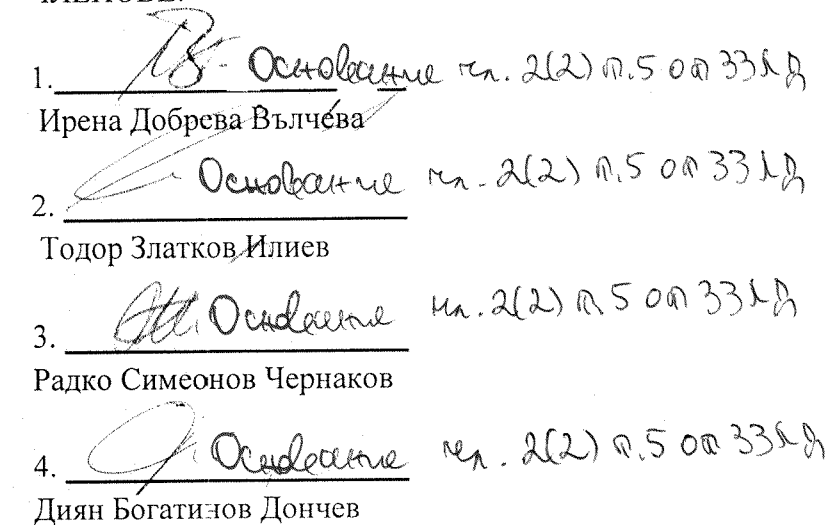 ЧЛЕНОВЕ:
1. Основание чл. 2(2) т.5 от ЗЗЛД
Ирена Добрева Вълчева
2. Основание чл. 2(2) т.5 от ЗЗЛД
Тодор Златков Илиев
3. Основание чл. 2(2) т.5 от ЗЗЛД
Радко Симеонов Чернаков
4. Основание чл. 2(2) т.5 от ЗЗЛД
Диян Богатинов Дончев